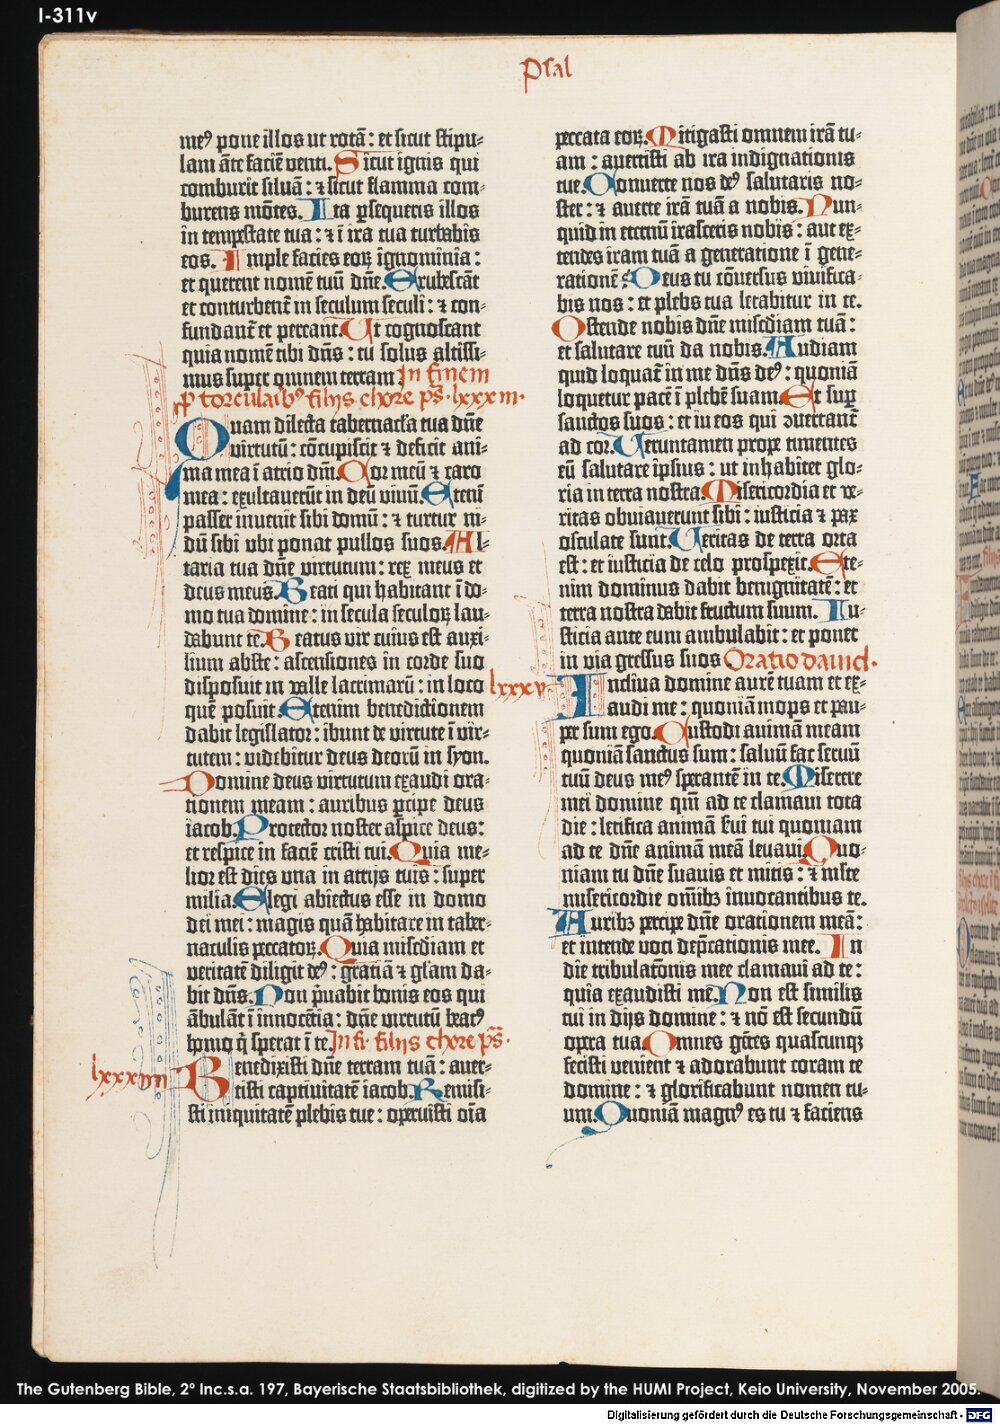 I-311v
Psal
me⁹ pone illos ut rotā: et sicut stipu-
lam āte faciē venti. Sicut ignis qui
comburit siluā: ⁊ sicut flamma com-
burens mōtes. Ita ꝑsequeris illos
in tempestate tua: ⁊ ī ira tua turbabis
eos. Imple facies eoꝝ ignominia:
et querent nomē tuū dn̄e. Erubescāt
et conturbent̄ in seculum seculi: ⁊ con-
fundant̄ et pereant. Ut cognoscant
quia nomē tibi dn̄s: tu solus altissi-
mus super omnem terram In finem
ꝓ torculaib⁹ filijs chore ps̄. lxxxiii.
Quam dilecta tabernacl̄a tua dn̄e
virtutū: cōcupiscit ⁊ deficit ani-
ma mea ī atrio dn̄i. Cor meū ⁊ caro
mea: exultauerūt in deū viuū. Etenī
passer inuenit sibi domū: ⁊ turtur ni-
dū sibi vbi ponat pullos suos. Al-
taria tua dn̄e virtutum: rex meus et
deus meus. Beati qui habitant ī do-
mo tua domine: in secula seculoꝝ lau-
dabunt te. Beatus vir cuius est auxi-
lium abste: ascensiones in corde suo
disposuit in valle lacrimarū: in loco
quē posuit. Etenim benedictionem
dabit legislator: ibunt de virtute ī vir-
tutem: videbitur deus deorū in syon.
Domine deus virtutum exaudi ora-
tionem meam: auribus ꝑcipe deus
iacob. Protector noster aspice deus:
et respice in faciē cristi tui. Quia me-
lior est dies vna in atrijs tuis: super
milia. Elegi abiectus esse in domo
dei mei: magis quā habitare in taber-
naculis peccatoꝝ. Quia misc̄diam et
veritatē diligit de⁹: gratiā ⁊ gl̄am da-
bit dn̄s. Non p̄uabit bonis eos qui
ābulāt ī innocētia: dn̄e virtutū beat⁹
homo q̄ sperat ī te. In fi. filijs chore ps̄.
lxxxiiii Benedixisti dn̄e terram tuā: auer-
tisti captiuitatē iacob. Remisi-
sti iniquitatē plebis tue: operuisti oīa
peccata eoꝝ. Mitigasti omnem irā tu-
am: auertisti ab ira indignationis
tue. Conuerte nos de⁹ salutaris no-
ster: ⁊ auerte irā tuā a nobis. Nun-
quid in eternū irasceris nobis: aut ex-
tendes iram tuam a generatione ī gene-
rationē? Deus tu cōuersus viuifica-
bis nos: et plebs tua letabitur in te.
Ostende nobis dn̄e misc̄diam tuā:
et salutare tuū da nobis. Audiam
quid loquat̄ in me dn̄s de⁹: quoniā
loquetur pacē ī plebē suam. Et suꝑ
sanctos suos: et in eos qui ꝯuertunt̄
ad cor. Ueruntamen prope timentes
eū salutare ipsius: ut inhabitet glo-
ria in terra nostra. Misericordia et ve-
ritas obuiauerunt sibi: iusticia ⁊ pax
osculate sunt. Ueritas de terra orta
est: et iusticia de celo prospexit. Ete-
nim dominus dabit benignitatē: et
terra nostra dabit fructum suum. Iu-
sticia ante eum ambulabit: et ponet
in via gressus suos Oratio dauid.
lxxxv. Inclina domine aurē tuam et ex-
audi me: quoniā inops et pau-
per sum ego. Custodi animā meam
quoniā sanctus sum: saluū fac seruū
tuū deus me⁹ sperantē in te. Miserere
mei domine qm̄ ad te clamaui tota
die: letifica animā ẜui tui quoniam
ad te dn̄e animā meā leuaui. Quo-
niam tu dn̄e suauis et mitis: ⁊ mlte
misericordie om̄ibꝫ inuocantibus te.
Auribꝫ percipe dn̄e orationem meā:
et intende voci dep̄cationis mee. In
die tribulatōnis mee clamaui ad te:
quia exaudisti me. Non est similis
tui in dijs domine: ⁊ nō est secundū
opera tua. Omnes gētes quascunqꝫ
fecisti venient ⁊ adorabunt coram te
domine: ⁊ glorificabunt nomen tu-
um. Quoniā magn⁹ es tu ⁊ faciens
The Gutenberg Bible, 2° Inc.s.a. 197, Bayerische Staatsbibliothek, digitized by the HUMI Project, Keio University, November 2005.
Digitalisierung gefördert durch die Deutsche Forschungsgemeinschaft - DFG